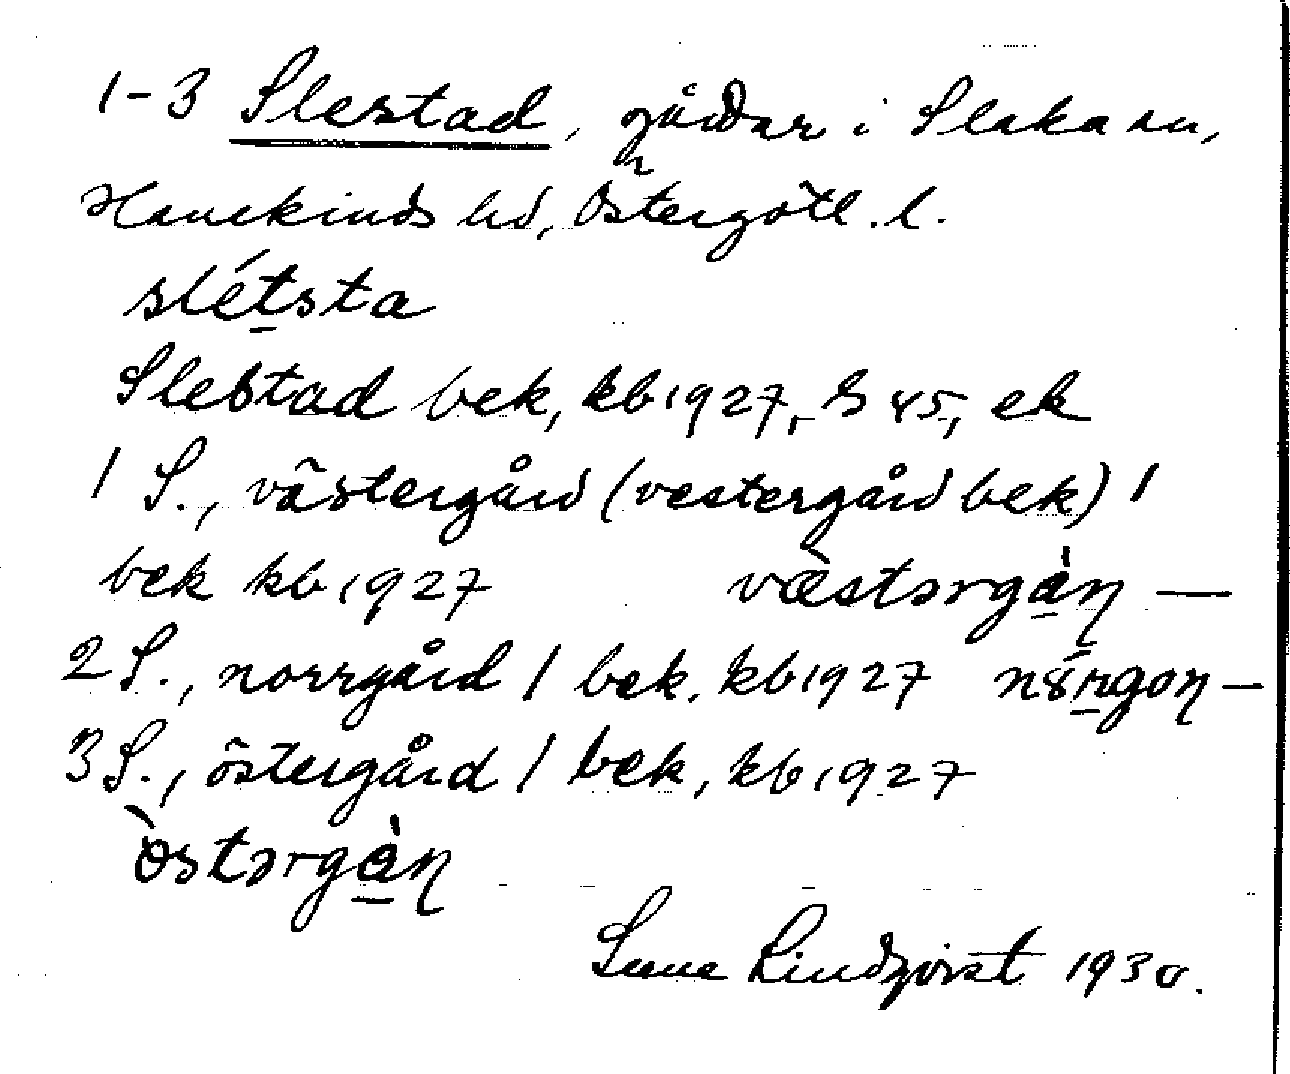 1-3 Slestad, gårdar i Slaka sn,
Hanekinds hd, Östergötl. l.
slétsta
Slestad bek, kb 1927, S 45, ek
1 S., västergård (vestergård bek) 1
bek kb 1927 væ̀stərgàn̩ —
2 S., norrgård 1 bek. kb 1927 —
3 S., östergård 1 bek, kb 1927
òstərgàn̩
Sune Lindqvist 1930.